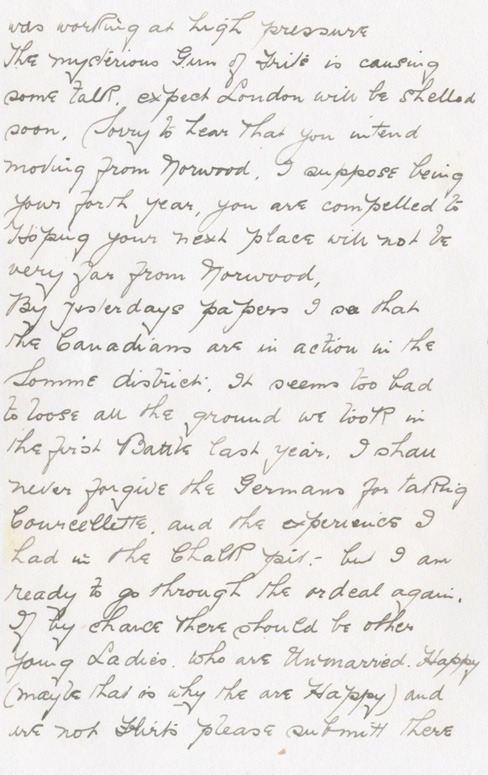 was working at high pressure
The mysterious Gun of Frits is causing
some talk, expect London will be shelled
soon. Sorry to hear that you intend
moving from Norwood, I suppose being
your forth year, you are compelled to
Hoping your next place will not be
very far from Norwood,
By yesterdays papers I se that
the Canadians are in action in the
Somme district. It seems too bad
to loose all the ground we took in
the first Battle last year. I shall
never forgive the Germans for taking
Courcellette, and the experience I
had in the Chalk pit.- but I am
ready to go through the ordeal again.
If by chance there should be other
young Ladies. who are Unmarried. Happy
(maybe that is why the are Happy) and
are not Flirts please submitt there